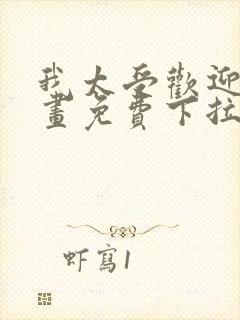 我太受歡迎
畫免費下拉
虾寫1